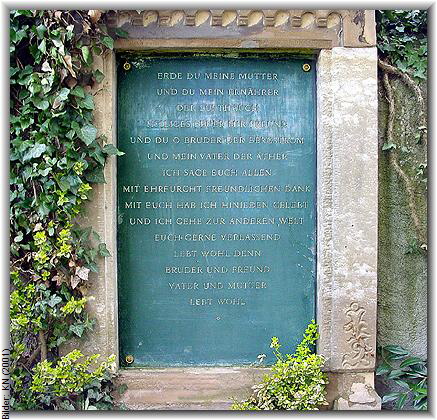 ERDE DU MEINE MUTTER
UND DU MEIN ERNÄHRER
DER LUFTHAUCH
HEILIGES FEUER MIR FREUND
UND DU O BRUDER DER BERGSTROM
UND MEIN VATER DER ÄTHER
ICH SAGE EUCH ALLEN
MIT EHRFURCHT FREUNDLICHEN DANK
MIT EUCH HAB ICH HINIEDEN GELEBT
UND ICH GEHE ZUR ANDEREN WELT
EUCH GERNE VERLASSEND
LEBT WOHL DENN
BRUDER UND FREUND
VATER UND MUTTER
LEBT WOHL
Bilder: KN (2001)